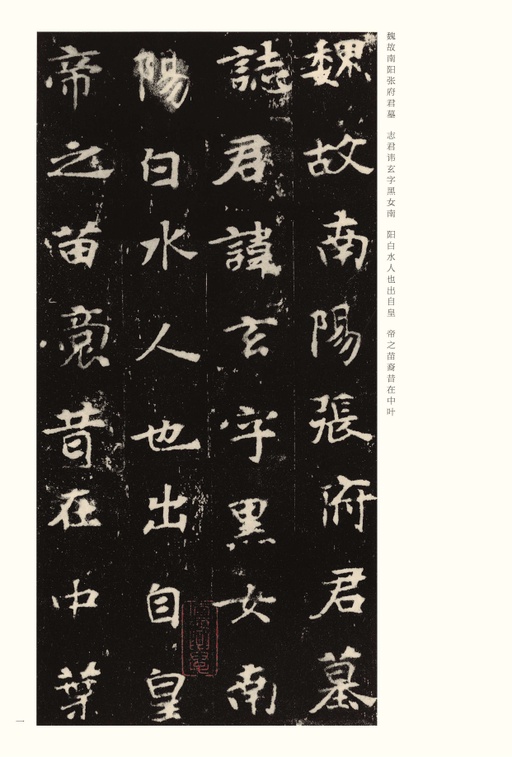 魏故南陽張府君墓
誌君諱玄字黑女南
陽白水人也出自皇
帝之苗裔昔在中葉
魏故南阳张府君墓 志君讳玄字黑女南 阳白水人也出自皇 帝之苗裔昔在中叶
一